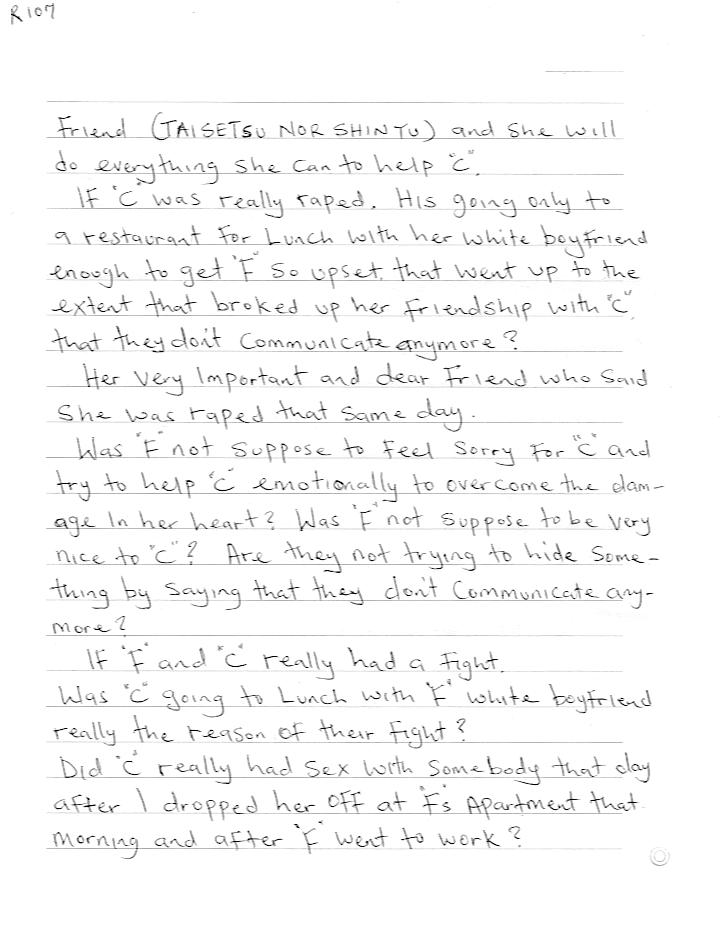 R107
Friend (TAISETSU NOR SHINYU) and She will
do everything she can to help "C".
If "C" was really raped. His going only to
a restaurant for Lunch with her white boyfriend
enough to get "F" so upset, that went up to the
extent that broked up her friendship with "C",
that they don't communicate anymore?
Her very Important and dear Friend who said
She was raped that same day.
Was "F" not suppose to feel sorry for "C" and
try to help "C" emotionally to overcome the dam-
age in her heart? Was "F" not suppose to be very
nice to "C"? Are they not trying to hide some-
thing by saying that they don't communicate any-
more?
If "F" and "C" really had a fight.
Was "C" going to Lunch with "F" white boyfriend
really the reason of their fight?
Did "C" really had sex with somebody that day
after I dropped her off at "F's" Apartment that
morning and after "F" went to work?